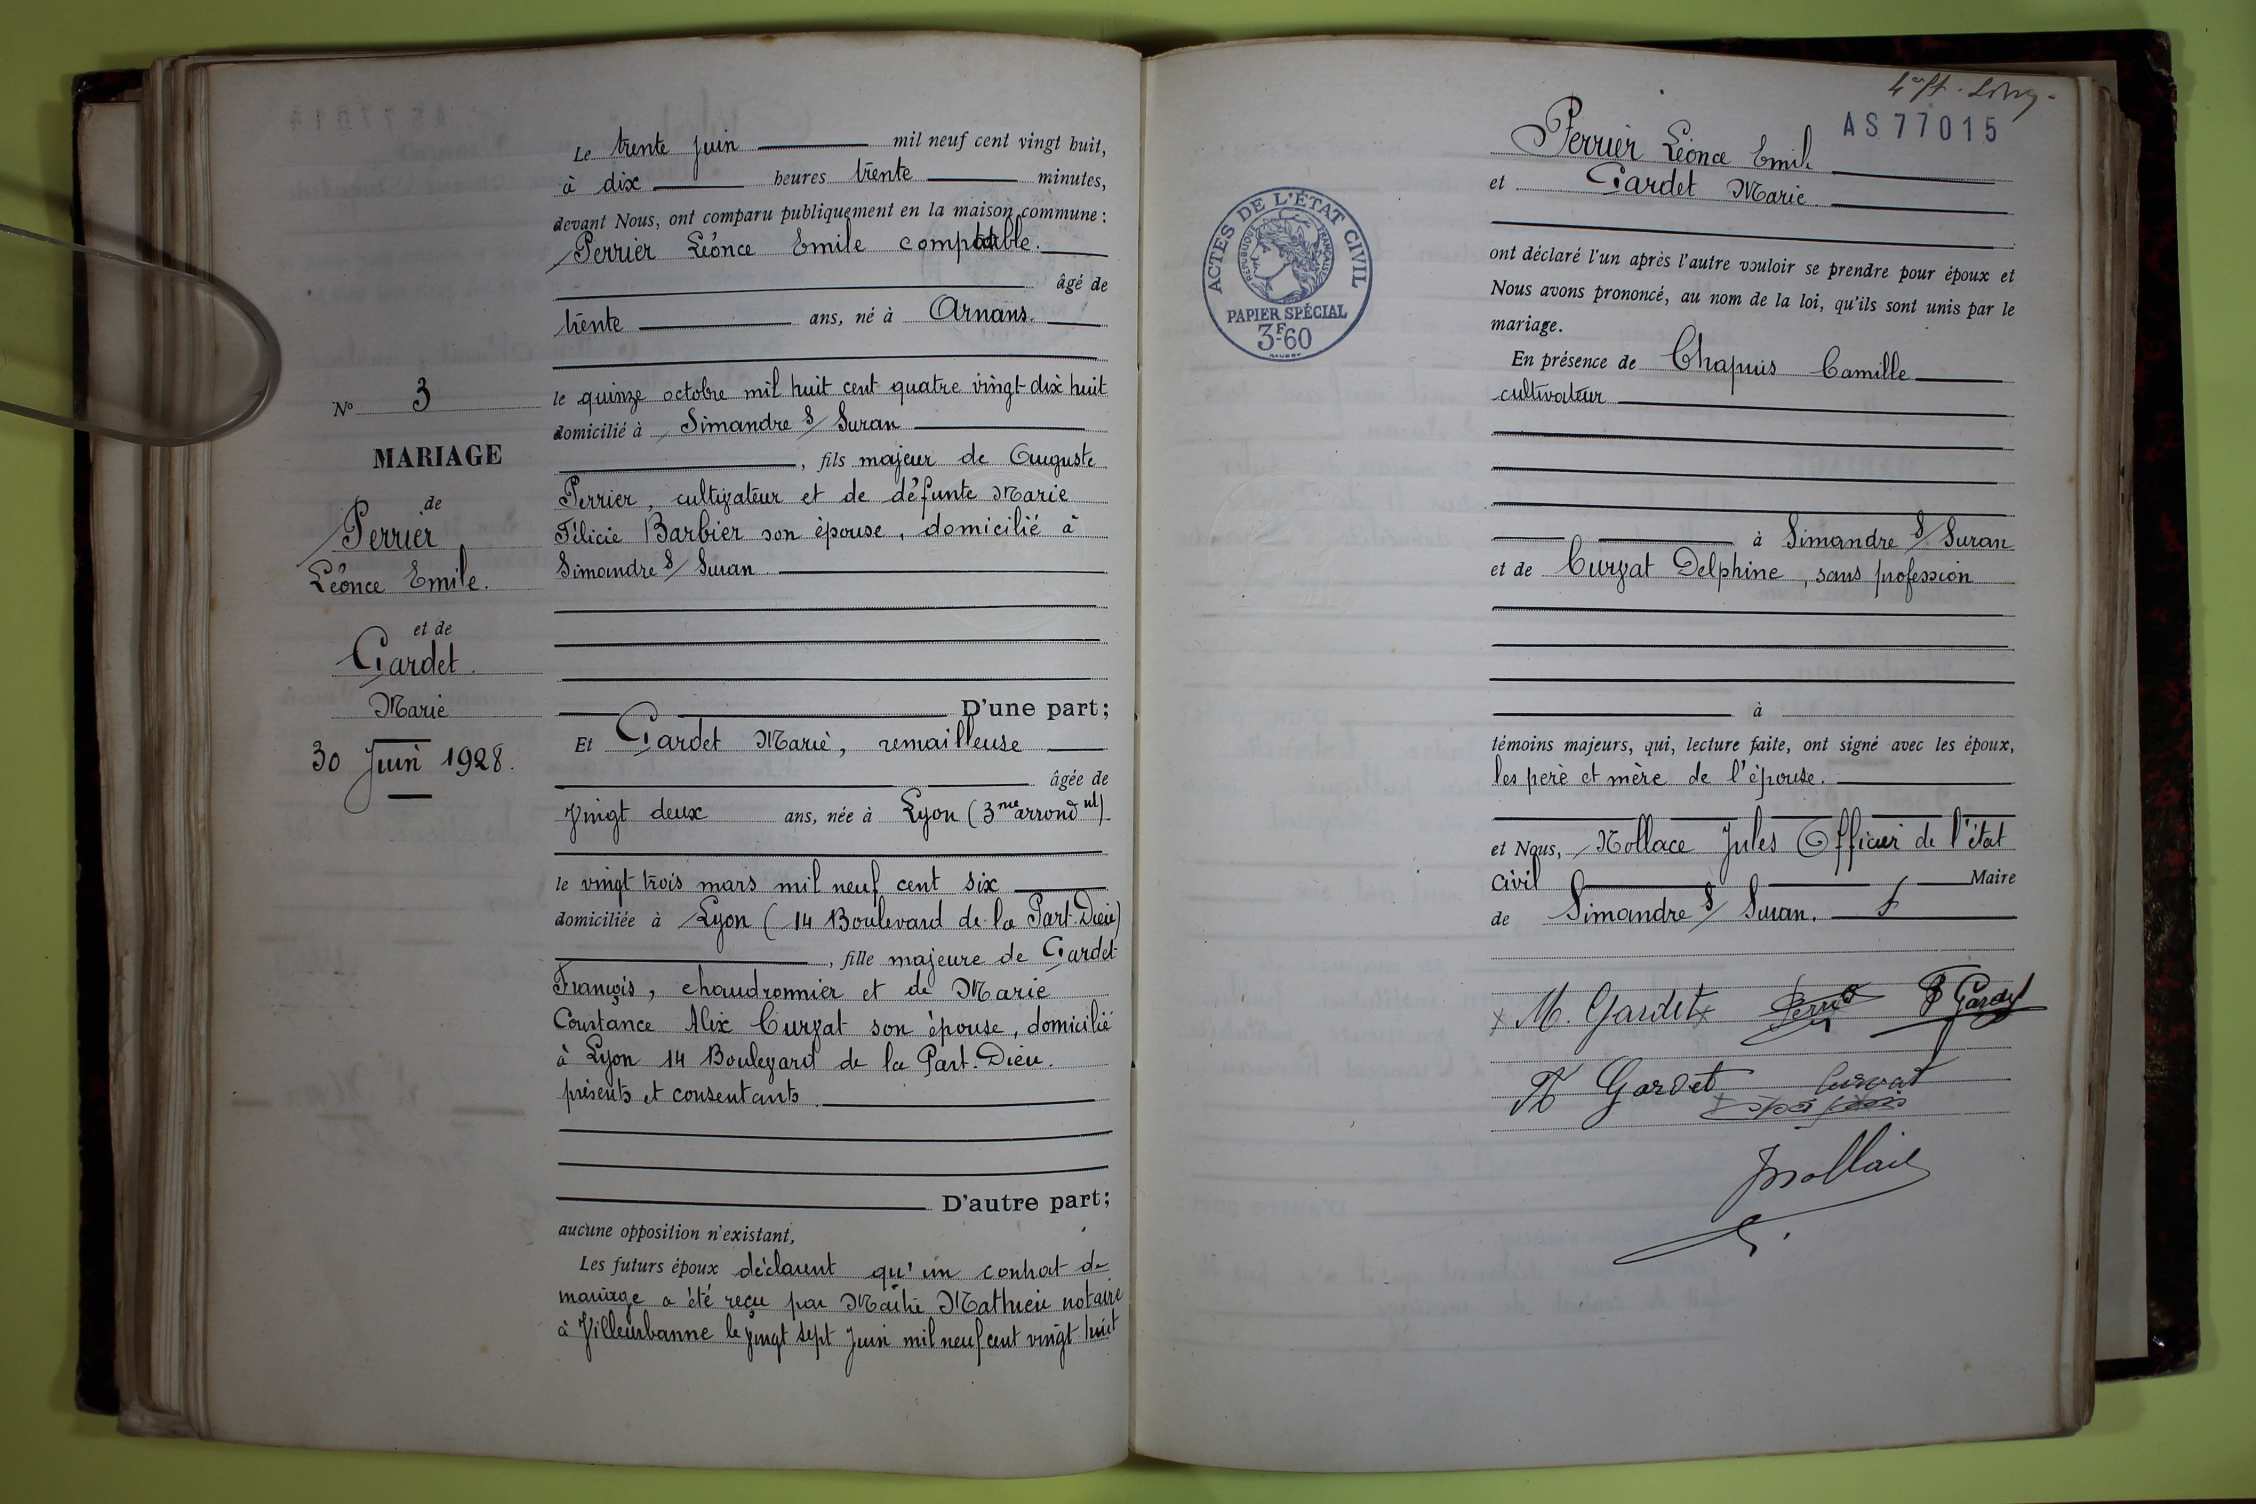 N° 3
MARIAGE
de
Perrier
Léonce Emile.
et de
Gardet
Marie
30 Juin 1928.
Le trente juin mil neuf cent vingt huit,
à dix heures trente minutes,
devant Nous, ont comparu publiquement en la maison commune :
Perrier Léonce Emile comptable.
âgé de
trente ans, né à Arnans.
le quinze octobre mil huit cent quatre vingt dix huit
domicilié à Simandre s/ Suran
, fils majeur de Auguste
Perrier, cultivateur et de défunte Marie
Félicie Barbier son épouse, domicilié à
Simandre s/ Suran
D'une part;
Et Gardet Marie, remailleuse
âgée de
vingt deux ans, née à Lyon (3me arrondnt)
le vingt trois mars mil neuf cent six
domiciliée à Lyon (14 Boulevard de la Part-Dieu)
, fille majeure de Gardet
François, chaudronnier et de Marie
Constance Alix Curvat son épouse, domicilié
à Lyon 14 Boulevard de la Part-Dieu.
présents et consentants
D'autre part;
aucune opposition n'existant,
Les futurs époux déclarent qu'un contrat de
mariage a été reçu par Maître Mathieu notaire
à Villeurbanne le vingt sept Juin mil neuf cent vingt huit
AS 77015
ACTES DE L'ÉTAT CIVIL
RÉPUBLIQUE FRANÇAISE
PAPIER SPÉCIAL
3F60
Perrier Léonce Emile
et Gardet Marie
ont déclaré l'un après l'autre vouloir se prendre pour époux et
Nous avons prononcé, au nom de la loi, qu'ils sont unis par le
mariage.
En présence de Chapuis Camille
cultivateur
à Simandre s/ Suran
et de Curvat Delphine, sans profession
à
témoins majeurs, qui, lecture faite, ont signé avec les époux,
les père et mère de l'épouse.
et Nous, Nollace Jules Officier de l'état
civil Maire
de Simandre s/ Suran.
M. Gardet Perrier F Gardet
Gardet Curvat